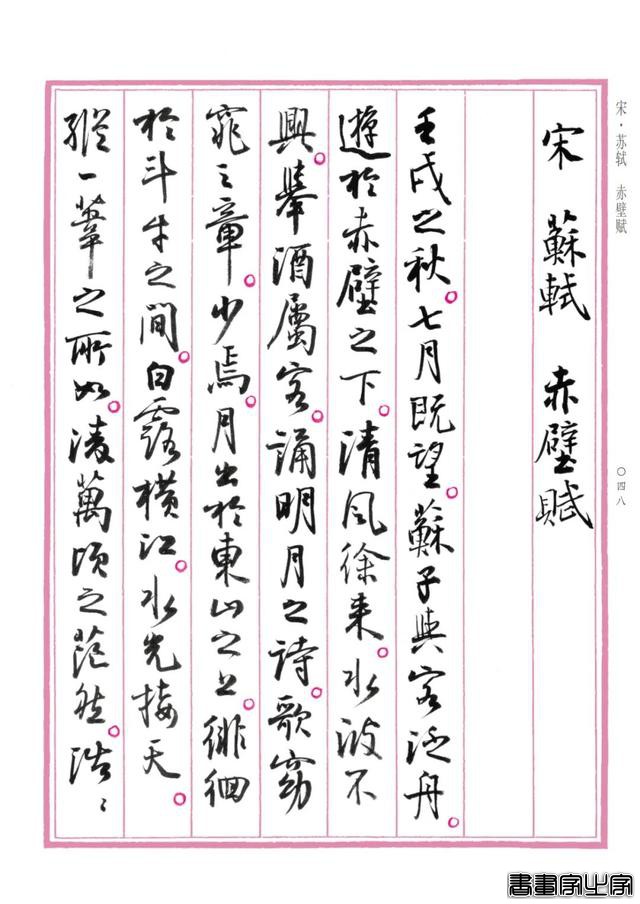 宋·苏轼 赤壁赋
〇四八
宋 蘇軾 赤壁賦
壬戌之秋。七月既望。蘇子與客泛舟。
遊於赤壁之下。清風徐来。水波不
興。舉酒屬客。誦明月之詩。歌窈
窕之章。少焉。月出於東山之上。徘徊
於斗牛之間。白露横江。水光接天。
縱一葦之所如。凌萬頃之茫然。浩〻